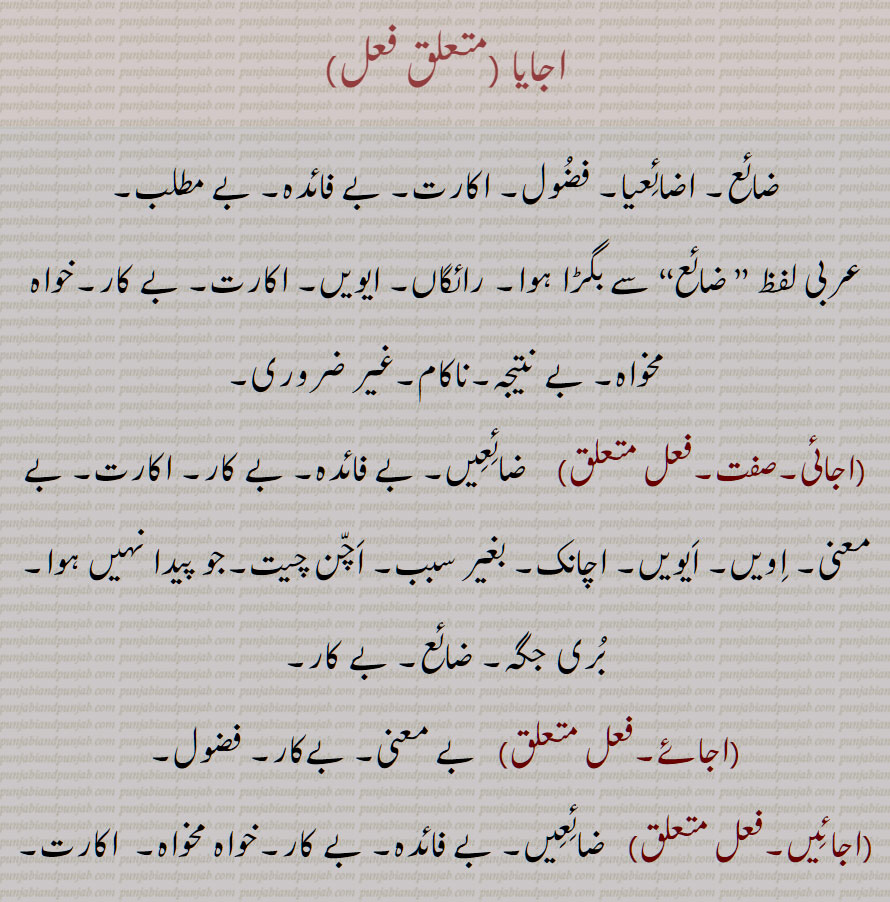 اجایا (متعلق فعل)
ضائع۔ اضائِعیا۔ فضُول۔ اکارت۔ بے فائدہ۔ بے مطلب۔
عربی لفظ ” ضائع“ سے بگڑا ہوا۔ رائگاں۔ ایویں۔ اکارت۔ بے کار۔خواہ
مخواہ۔ بے نتیجہ۔ناکام۔غیر ضروری۔
(اجائی۔صفت۔فعل متعلق) ضائِعِیں۔ بے فائدہ۔ بے کار۔ اکارت۔ بے
معنی۔ اِویں۔ اَیویں۔ اچانک۔ بغیر سبب۔ اَچّن چیت۔جو پیدا نہیں ہوا۔
بُری جگہ۔ ضائع۔ بے کار۔
(اجائے۔فعل متعلق) بے معنی۔ بےکار۔ فضول۔
(اجائِیں۔فعل متعلق) ضائِعِیں۔ بے فائدہ۔ بے کار۔خواہ مخواہ۔ اکارت۔